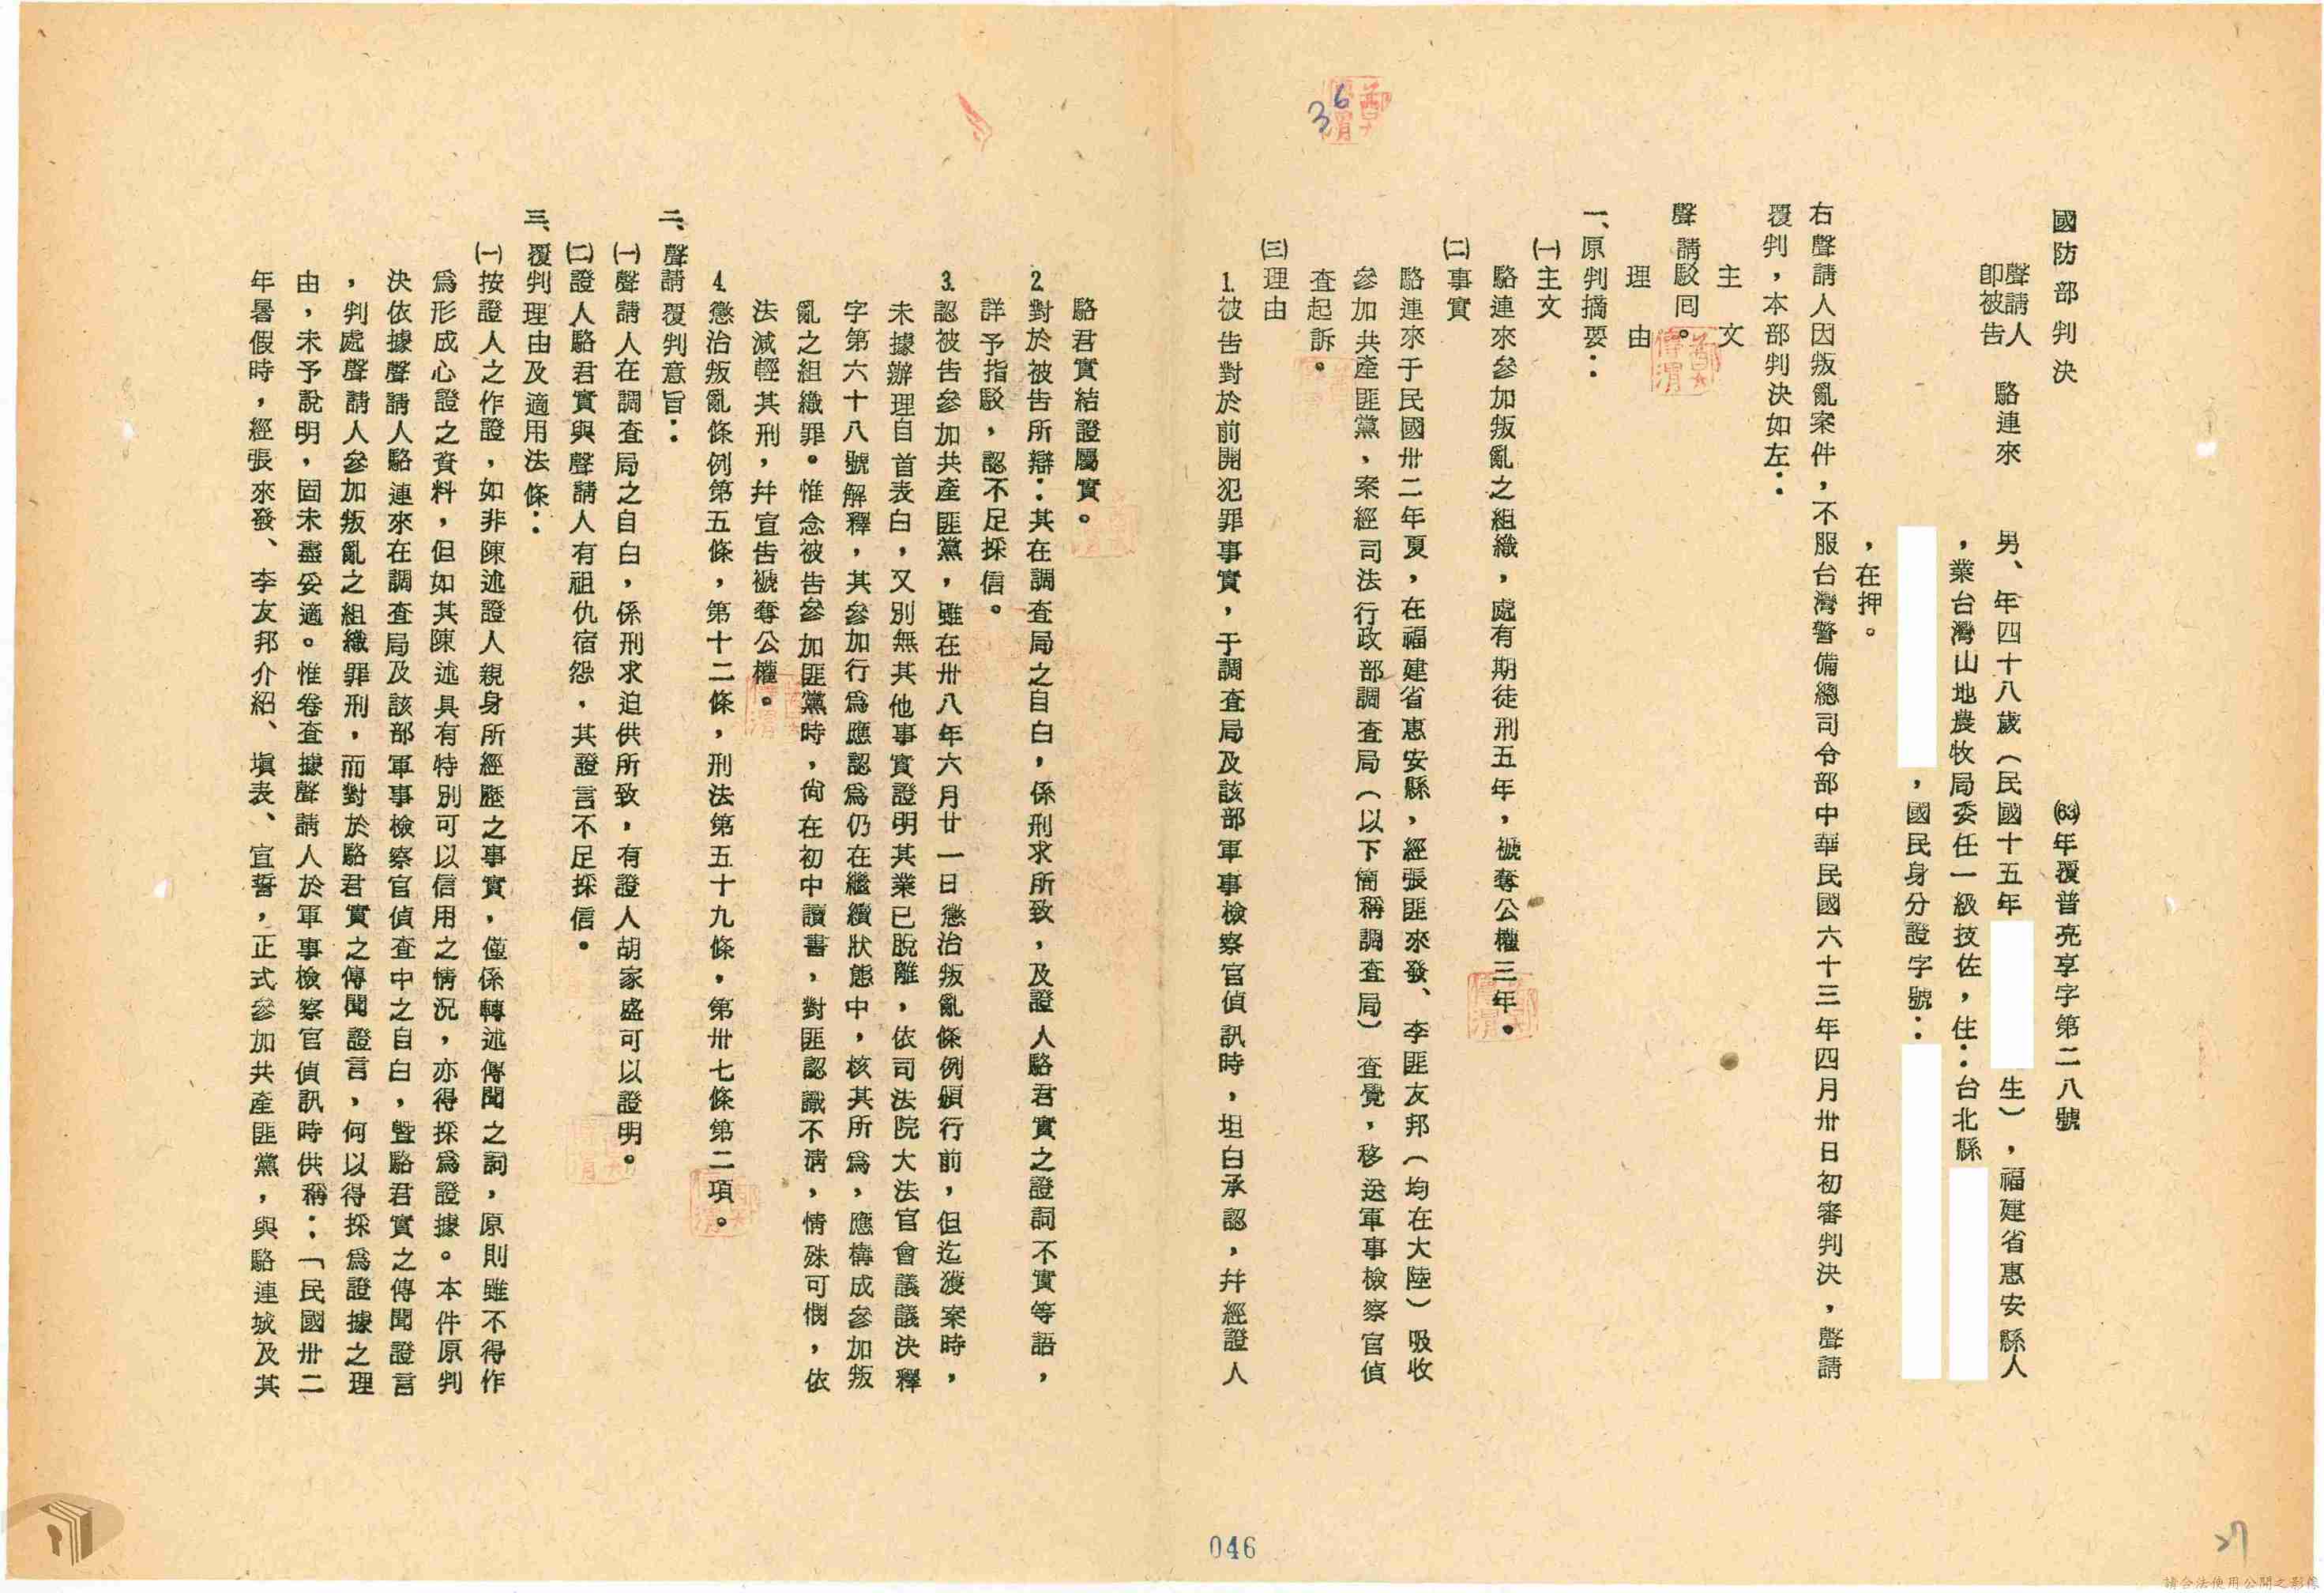 國防部判決
(63)年覆普亮享字第二八號
聲請人
即被告
駱連來
男、年四十八歲（民國十五年
生），福建省惠安縣人
，業台灣山地農牧局委任一級技佐，住：台北縣
，國民身分證字號：
，在押。
右聲請人因叛亂案件，不服台灣警備總司令部中華民國六十三年四月卅日初審判決，聲請
覆判，本部判決如左：
主文
聲請駁囘。
理由
一、原判摘要：
㈠主文
駱連來參加叛亂之組織，處有期徒刑五年，褫奪公權三年。
㈡事實
駱連來于民國卅二年夏，在福建省惠安縣，經張匪來發、李匪友邦（均在大陸）吸收
參加共產匪黨，案經司法行政部調查局（以下簡稱調查局）查覺，移送軍事檢察官偵
查起訴。
㈢理由
1.被告對於前開犯罪事實，于調查局及該部軍事檢察官偵訊時，坦白承認，幷經證人
駱君實結證屬實。
2.對於被告所辯：其在調查局之自白，係刑求所致，及證人駱君實之證詞不實等語，
詳予指駁，認不足採信。
3.認被告參加共產匪黨，雖在卅八年六月廿一日懲治叛亂條例頒行前，但迄獲案時，
未據辦理自首表白，又別無其他事實證明其業已脫離，依司法院大法官會議議決釋
字第六十八號解釋，其參加行爲應認爲仍在繼續狀態中，核其所爲，應構成參加叛
亂之組織罪。惟念被告參加匪黨時，尙在初中讀書，對匪認識不淸，情殊可憫，依
法減輕其刑，幷宣告褫奪公權。
4.懲治叛亂條例第五條，第十二條，刑法第五十九條，第卅七條第二項。
二、聲請覆判意旨：
㈠聲請人在調查局之自白，係刑求迫供所致，有證人胡家盛可以證明。
㈡證人駱君實與聲請人有祖仇宿怨，其證言不足採信。
三、覆判理由及適用法條：
㈠按證人之作證，如非陳述證人親身所經歷之事實，僅係轉述傳聞之詞，原則雖不得作
爲形成心證之資料，但如其陳述具有特別可以信用之情況，亦得採爲證據。本件原判
決依據聲請人駱連來在調查局及該部軍事檢察官偵查中之自白，曁駱君實之傳聞證言
，判處聲請人參加叛亂之組織罪刑，而對於駱君實之傳聞證言，何以得採爲證據之理
由，未予說明，固未盡妥適。惟卷查據聲請人於軍事檢察官偵訊時供稱：「民國卅二
年暑假時，經張來發、李友邦介紹、塡表、宣誓，正式參加共產匪黨，與駱連城及其
36
046
37
請合法使用公開之影像